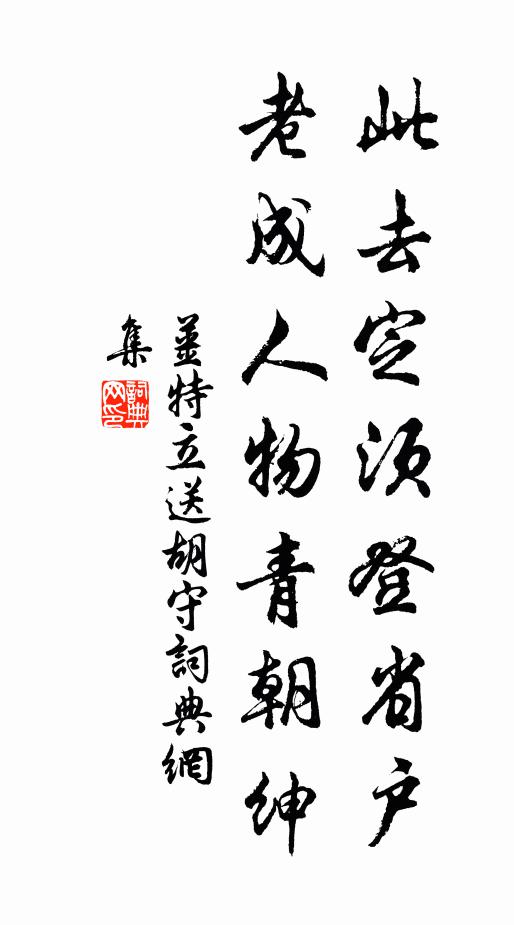 此去定須登省户
老成人物青朝紳
薑特立送胡守詞典網
集
詞典
网印